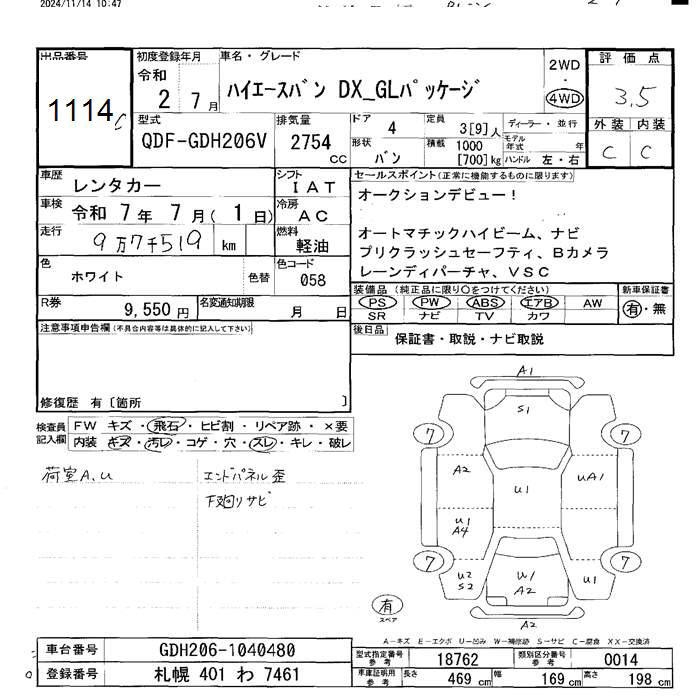 2024/11/14 10:47
出品番号
1114
初度登録年月
令和
2 7月
車名・グレード
ハイエースバン DX_GLパッケージ
2WD
・
4WD
評価点
3.5
外装 内装
C C
型式
QDF-GDH206V
排気量
2754
CC
ドア
4
定員
3[9]人
ディーラー・並行
形状
バン
積載
1000
[700]kg
モデル年式 年
ハンドル 左・右
車歴
レンタカー
シフト
IAT
車検
令和 7年 7月( 1日)
冷房
AC
走行
9万7千519 km
燃料
軽油
色
ホワイト
色替
色コード
058
R券
9,550円
名変通知期限
月 日
セールスポイント(正常に機能するものに限ります)
オークションデビュー!
オートマチックハイビーム、ナビ
プリクラッシュセーフティ、Bカメラ
レーンディパーチャ、VSC
装備品(純正品に限り○をつけてください)
新車保証書
PS PW ABS エアB AW
有・無
SR ナビ TV カワ
後日品
保証書・取説・ナビ取説
注意事項申告欄(不具合内容等は具体的に記入して下さい)
修復歴 有〔箇所 〕
検査員記入欄
FW キズ・飛石・ヒビ割・リペア跡・×要
内装 キズ・汚レ・コゲ・穴・スレ・キレ・破レ
荷室A、U
エンドパネル歪
下廻りサビ
A1
S1
7
7
A2
U1
UA1
U1
A4
7
7
U2
S2
U1
A2
U1
有
スペア
A2
A-キズ E-エクボ U-凹み W-補修跡 S-サビ C-腐食 XX-交換済
車台番号
GDH206-1040480
登録番号
札幌 401 わ 7461
型式指定番号
参考
18762
類別区分番号
参考
0014
車庫証明用
参考
長さ
469 cm
幅
169 cm
高さ
198 cm